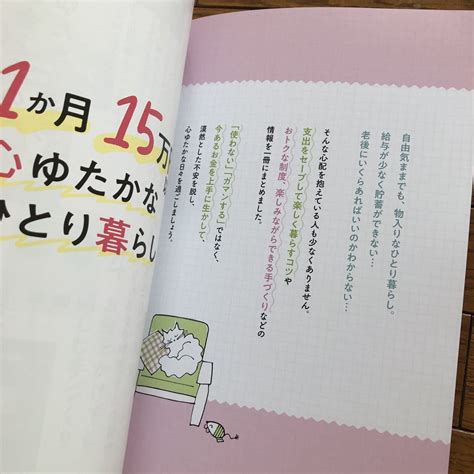 1か月 15万
心ゆたかな
ひとり暮らし
自由気ままでも、物入りなひとり暮らし。
給与が少なく貯蓄ができない…
老後にいくらあればいいのかわからない…
そんな心配を抱えている人も少なくありません。
支出をセーブして楽しく暮らすコツや
おトクな制度、楽しみながらできる手づくりなどの
情報を一冊にまとめました。
「使わない」「ガマンする」ではなく、
今あるお金を上手に生かして、
漠然とした不安を脱し、
心ゆたかな日々を過ごしましょう。